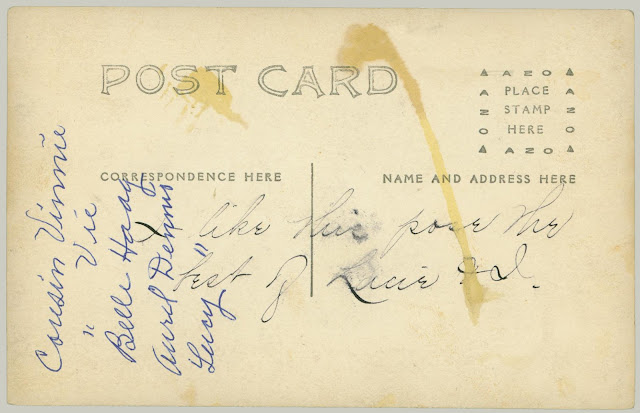 POST CARD
AZO
PLACE
STAMP
HERE
AZO
AZO
AZO
CORRESPONDENCE HERE
NAME AND ADDRESS HERE
I like this pose the
best of Lucie & I.
Cousin Vinnie
" Vie
Belle Haag
Auril Dennis
Lucy "